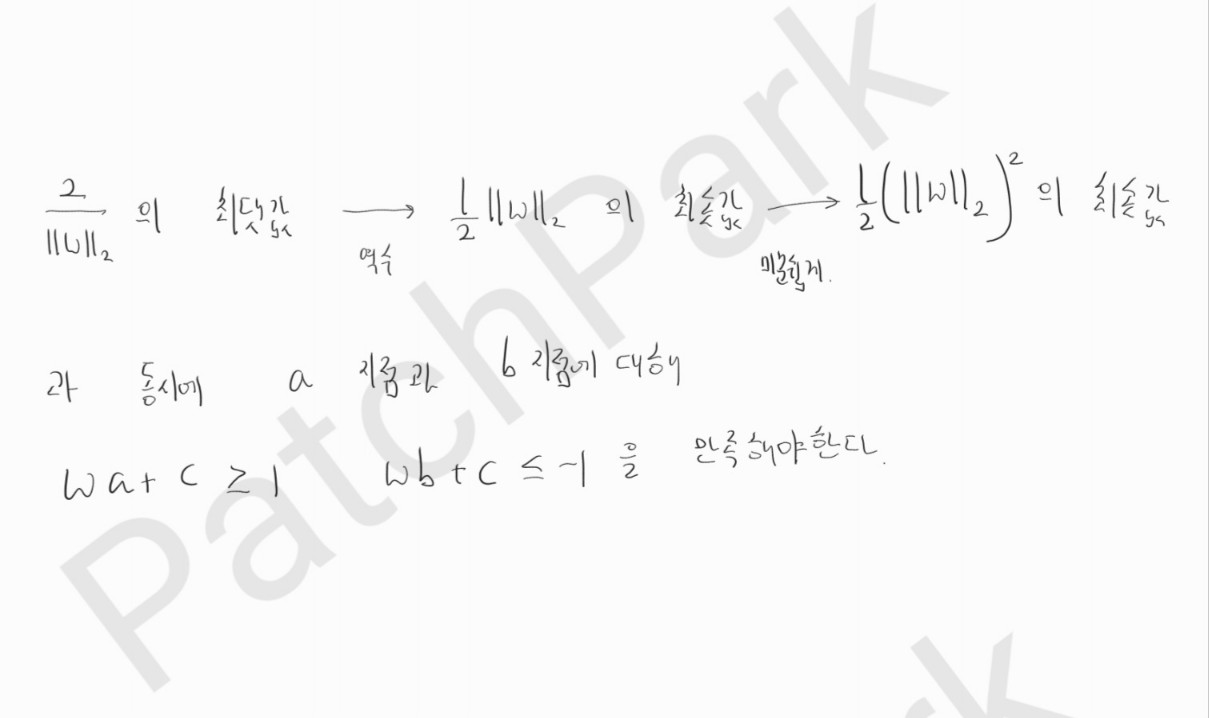 2/||w||₂ 의 최댓값 → 1/2 ||w||₂ 의 최솟값 → 1/2 (||w||₂)² 의 최솟값
역수 미분쉽게.
과 동시에 a 지점과 b 지점에 대해
wa + c ≥ 1 wb + c ≤ -1 을 만족해야한다.
PatchPark